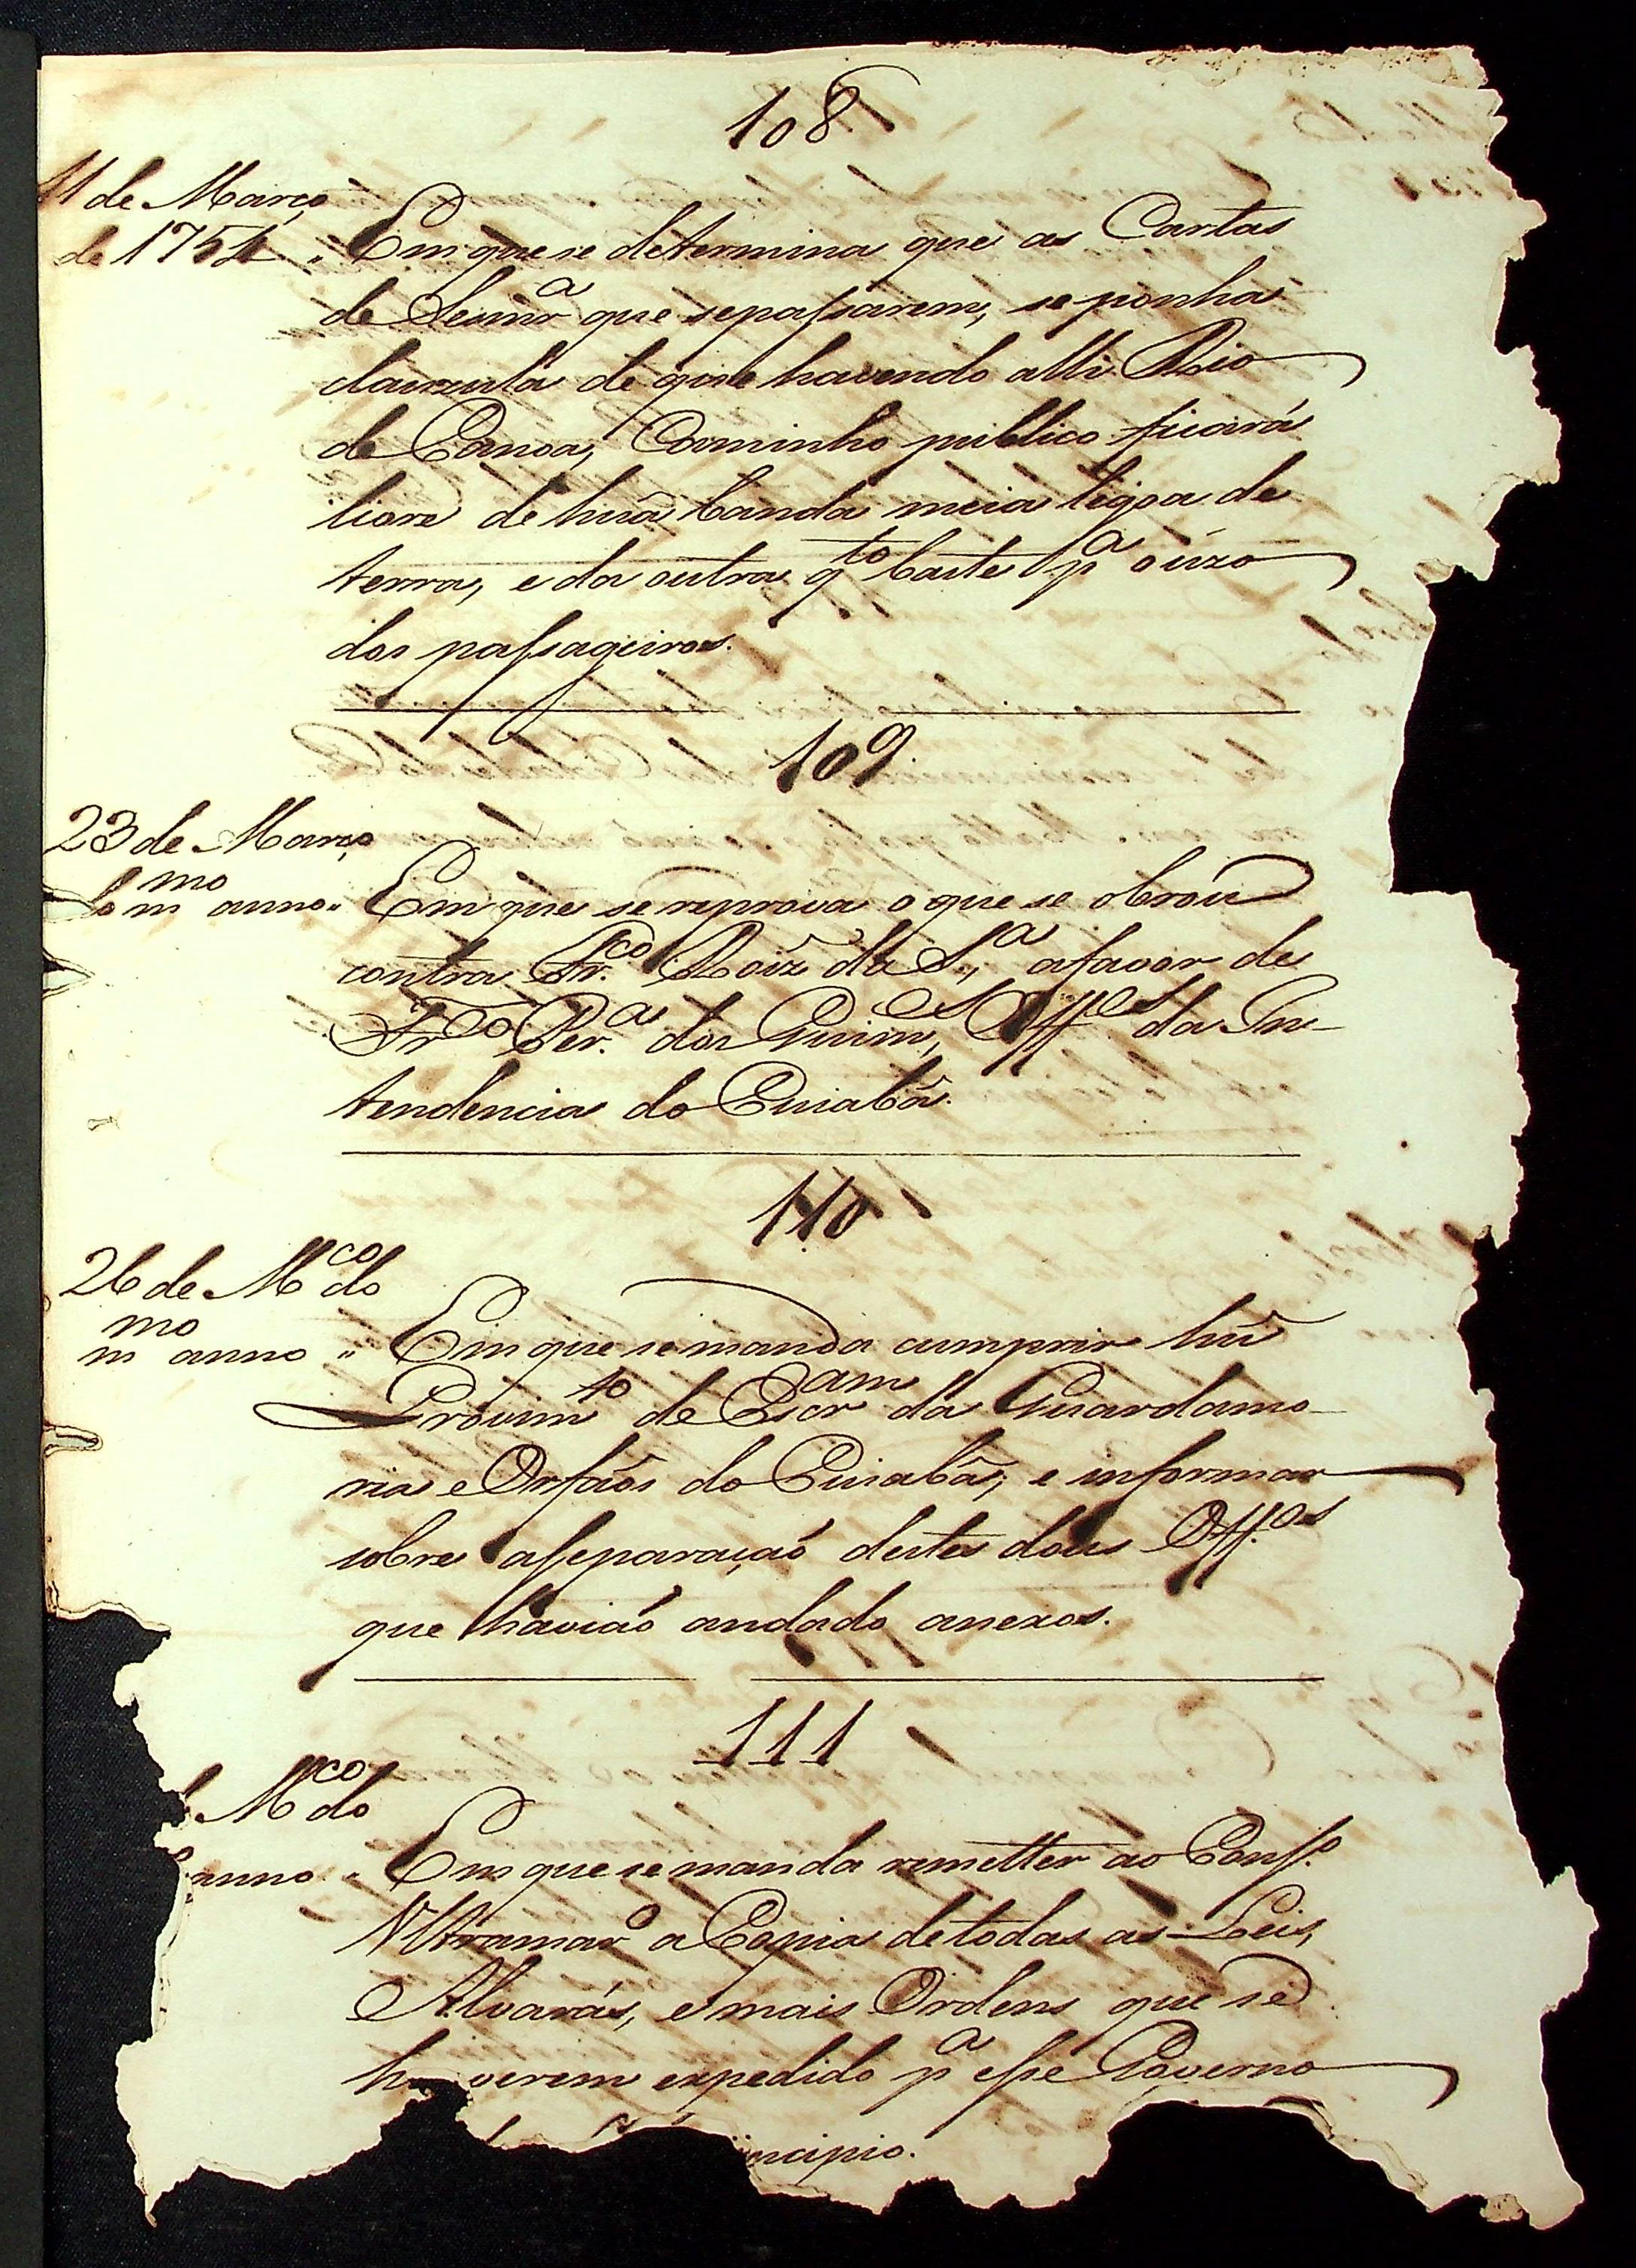 108
11 de Março
de 1754 " Em que se determina que as Cartas
de Sesmr.a que se passarem, se ponha
clauzula de que havendo alli Rio
de Canoa, Caminho publico ficará
livre de hũa banda meia legoa de
terra, e da outra q.to baste p.a o úzo
dos passageiros.
109.
23 de Março
do m.mo anno " Em que se reprova o que se obrou
contra Fr.co Roiz da S.a, a favor de
Fr.co Per.a dos Guim.es, Off.es da In-
tendencia do Cuiabá.
110
26 de M.ço do
m.mo anno " Em que se manda cumprir hũ
Provim.to de Escr.am da Guardamo-
ria e Orfãos do Cuiabá; e informar
sobre a separação destes dous Off.os
que havião andado anexos.
111
M.ço do
anno " Em que se manda remetter ao Cons.o
Ultramar.o a Copia de todas as Leis,
Alvarás, e mais Ordens que se
houverem expedido p.a esse Governo
incipio.